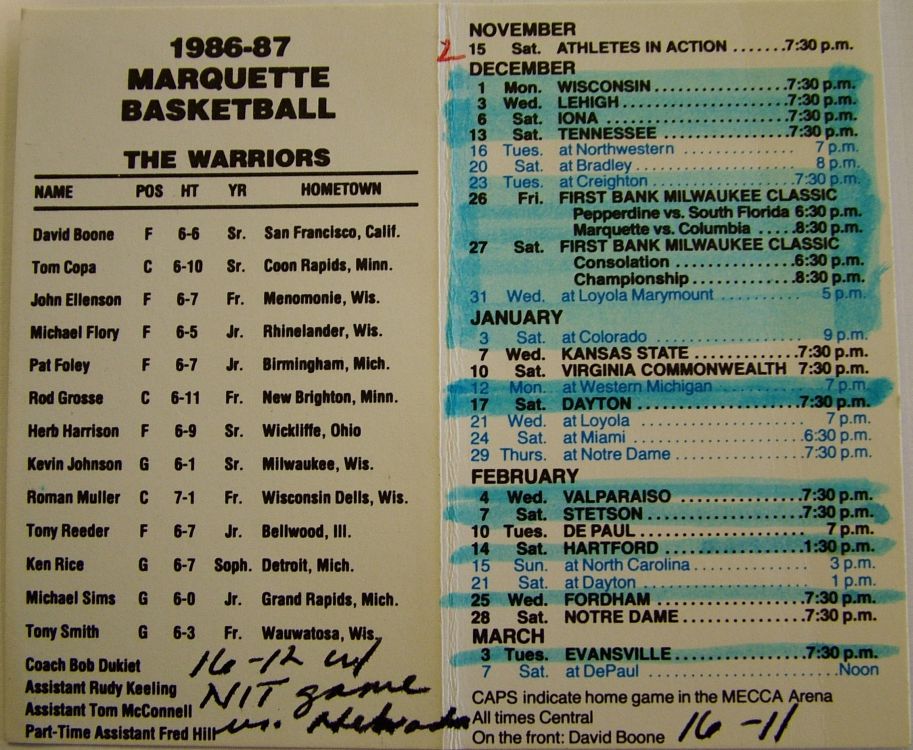 1986-87
MARQUETTE
BASKETBALL
THE WARRIORS
NAME POS HT YR HOMETOWN
David Boone F 6-6 Sr. San Francisco, Calif.
Tom Copa C 6-10 Sr. Coon Rapids, Minn.
John Ellenson F 6-7 Fr. Menomonie, Wis.
Michael Flory F 6-5 Jr. Rhinelander, Wis.
Pat Foley F 6-7 Jr. Birmingham, Mich.
Rod Grosse C 6-11 Fr. New Brighton, Minn.
Herb Harrison F 6-9 Sr. Wickliffe, Ohio
Kevin Johnson G 6-1 Sr. Milwaukee, Wis.
Roman Muller C 7-1 Fr. Wisconsin Dells, Wis.
Tony Reeder F 6-7 Jr. Bellwood, Ill.
Ken Rice G 6-7 Soph. Detroit, Mich.
Michael Sims G 6-0 Jr. Grand Rapids, Mich.
Tony Smith G 6-3 Fr. Wauwatosa, Wis.
Coach Bob Dukiet
Assistant Rudy Keeling
Assistant Tom McConnell
Part-Time Assistant Fred Hill
16-12 w/
NIT game
vs. Nebraska
NOVEMBER
2 15 Sat. ATHLETES IN ACTION .......7:30 p.m.
DECEMBER
1 Mon. WISCONSIN.................7:30 p.m.
3 Wed. LEHIGH.....................7:30 p.m.
6 Sat. IONA ........................7:30 p.m.
13 Sat. TENNESSEE ................7:30 p.m.
16 Tues. at Northwestern ................. 7 p.m.
20 Sat. at Bradley....................... 8 p.m.
23 Tues. at Creighton ..................7:30 p.m.
26 Fri. FIRST BANK MILWAUKEE CLASSIC
Pepperdine vs. South Florida 6:30 p.m.
Marquette vs. Columbia .....8:30 p.m.
27 Sat. FIRST BANK MILWAUKEE CLASSIC
Consolation ...............6:30 p.m.
Championship .............8:30 p.m.
31 Wed. at Loyola Marymount ............. 5 p.m.
JANUARY
3 Sat. at Colorado ...................... 9 p.m.
7 Wed. KANSAS STATE .............7:30 p.m.
10 Sat. VIRGINIA COMMONWEALTH 7:30 p.m.
12 Mon. at Western Michigan ............. 7 p.m.
17 Sat. DAYTON ....................7:30 p.m.
21 Wed. at Loyola ........................ 7 p.m.
24 Sat. at Miami .....................6:30 p.m.
29 Thurs. at Notre Dame ................7:30 p.m.
FEBRUARY
4 Wed. VALPARAISO ...............7:30 p.m.
7 Sat. STETSON ...................7:30 p.m.
10 Tues. DE PAUL ..................... 7 p.m.
14 Sat. HARTFORD .................1:30 p.m.
15 Sun. at North Carolina ................ 3 p.m.
21 Sat. at Dayton ........................ 1 p.m.
25 Wed. FORDHAM ..................7:30 p.m.
28 Sat. NOTRE DAME ...............7:30 p.m.
MARCH
3 Tues. EVANSVILLE ................7:30 p.m.
7 Sat. at DePaul .......................Noon
CAPS indicate home game in the MECCA Arena
All times Central
On the front: David Boone
16-11